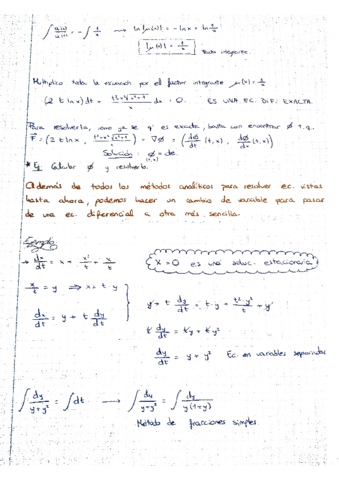 ∫ μ'(x)/μ(x) = -∫ 1/x ⟶ ln|μ(x)| = -ln x + ln 1/x
|μ(x)| = 1/x factor integrante
Multiplico toda la ecuación por el factor integrante μ(x) = 1/x
(2 t ln x) dt + (t²+x²√(x²+1))/x dx = 0. ES UNA EC. DIF. EXACTA.
Para resolverla, como ya se q' es exacta, basta con encontrar ∅ t.q.
F = (2 t ln x , (t²+x²√(x²+1))/x) = ∇∅ = (d∅/dt (t,x), d∅/dx (t,x))
Solución: ∅(t,x) = cte.
* Ej: Calcular ∅ y resolverla.
Además de todos los métodos analíticos para resolver ec. vistas
hasta ahora, podemos hacer un cambio de variable para pasar
de una ec. diferencial a otra más sencilla.
Ejemplo
→ dx/dt = x + x²/t + x/t
X = 0 es una soluc. estacionaria
x/t = y ⟹ x = t·y
y + t dy/dt = t·y + t²·y²/t + y
dx/dt = y + t dy/dt
t dy/dt = ty + ty²
dy/dt = y + y² Ec. en variables separadas
∫ dy/(y+y²) = ∫ dt ⟶ ∫ dy/(y+y²) = ∫ dy/(y(1+y))
Método de fracciones simples